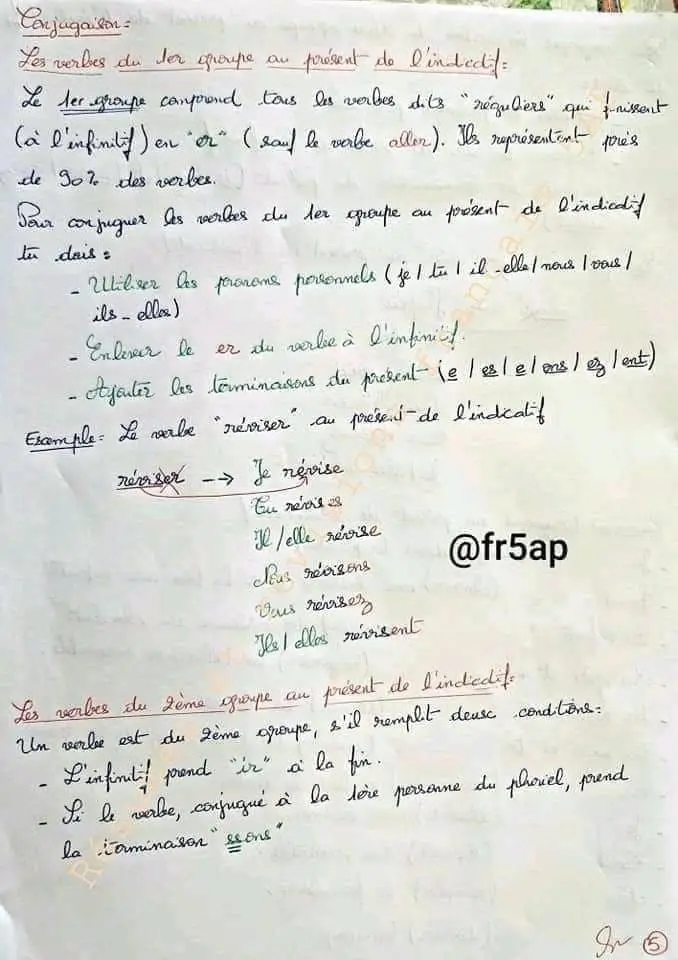 Conjugaison :
Les verbes du 1er groupe au présent de l'indicatif :
Le 1er groupe comprend tous les verbes dits "réguliers" qui finissent
(à l'infinitif) en "er" (sauf le verbe aller). Ils représentent près
de 90% des verbes.
Pour conjuguer les verbes du 1er groupe au présent de l'indicatif
tu dois :
- Utiliser les pronoms personnels (je / tu / il - elle / nous / vous /
ils - elles)
- Enlever le er du verbe à l'infinitif.
- Ajouter les terminaisons du présent (e / es / e / ons / ez / ent)
Exemple : Le verbe "réviser" au présent de l'indicatif
réviser --> Je révise
Tu révises
Il / elle révise
@fr5ap
Nous révisons
Vous révisez
Ils / elles révisent
Les verbes du 2ème groupe au présent de l'indicatif :
Un verbe est du 2ème groupe, s'il remplit deux conditions :
- L'infinitif prend "ir" à la fin.
- Si le verbe, conjugué à la 1ère personne du pluriel, prend
la terminaison "ssons"
5